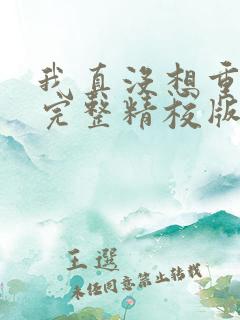 我真没想重
完整精校版
王選
未经同意禁止转载